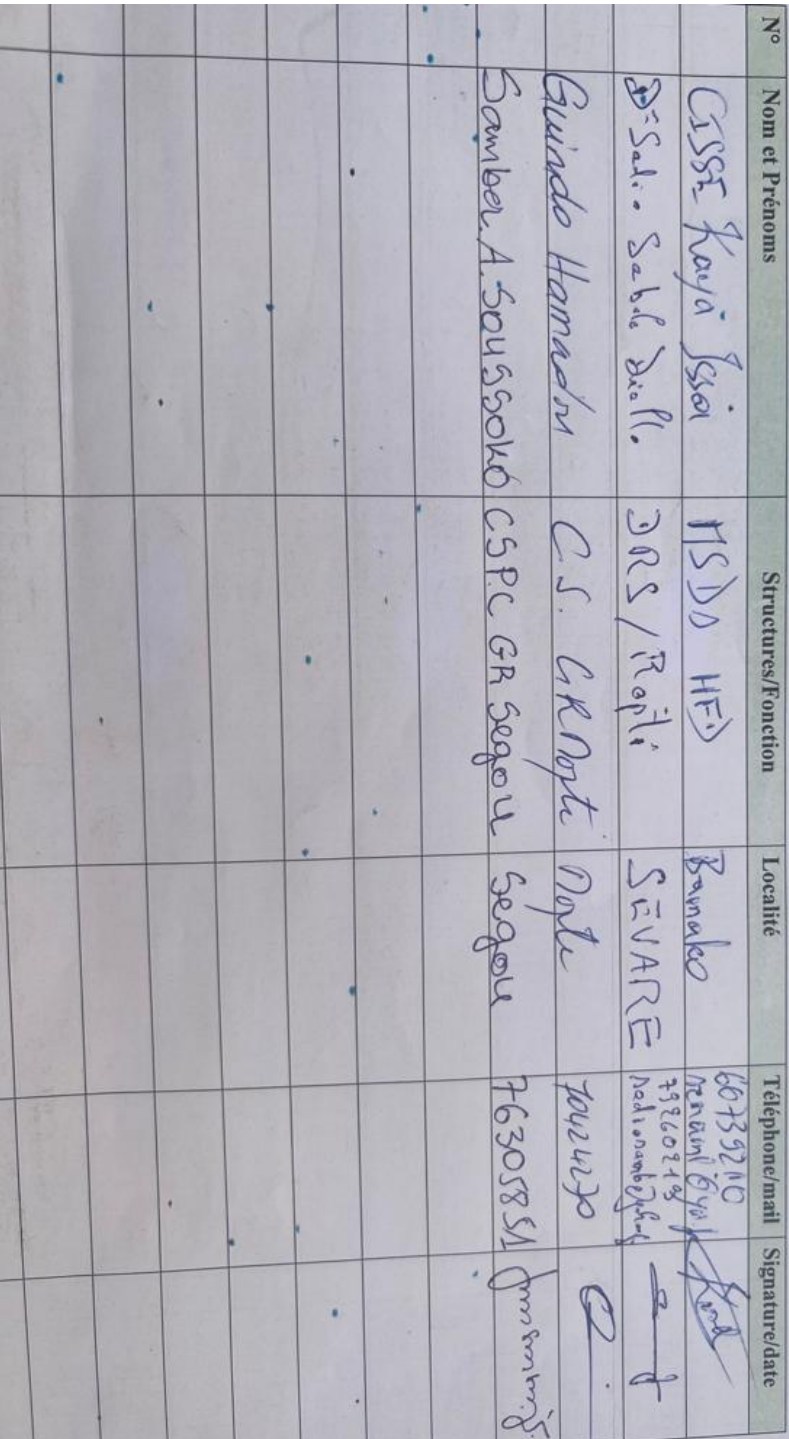 N° Nom et Prénoms Structures/Fonction Localité Téléphone/mail Signature/date
CISSE Kaya Issa MSDS HFD Bamako 66739210
Dr Salif Diallo DRS / Mopti SEVARE 79960219
Guindo Hamadou C.S. GR Mopti Mopti 70424270
Samba A. Soussokó CSPC GR Segou Segou 76305851